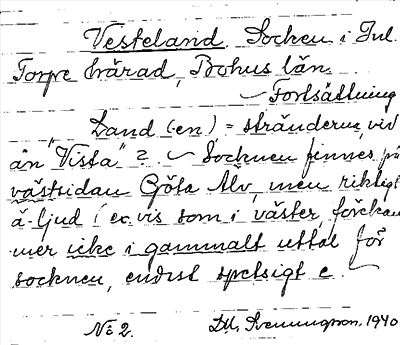 Vesteland. Socken i Inl.
Torpe härad, Bohus län.
Fortsättning
Land (en) = stränderna, vid
ån "Vista" ? Socknen finnes på
västsidan Göta Älv, men riktigt
ä-ljud (ex. vis som i väster förekom
mer icke i gammalt uttal för
socknen, endast spetsigt e.
No 2. D.M. Svenungson. 1940